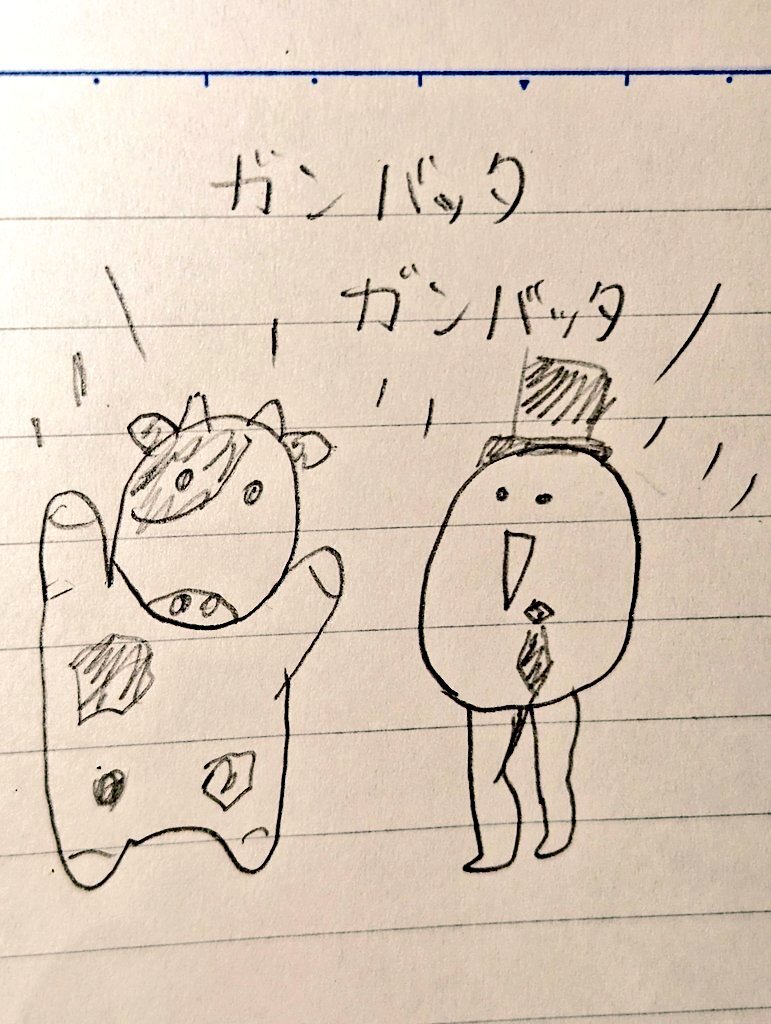 ガンバッタ
ガンバッタ